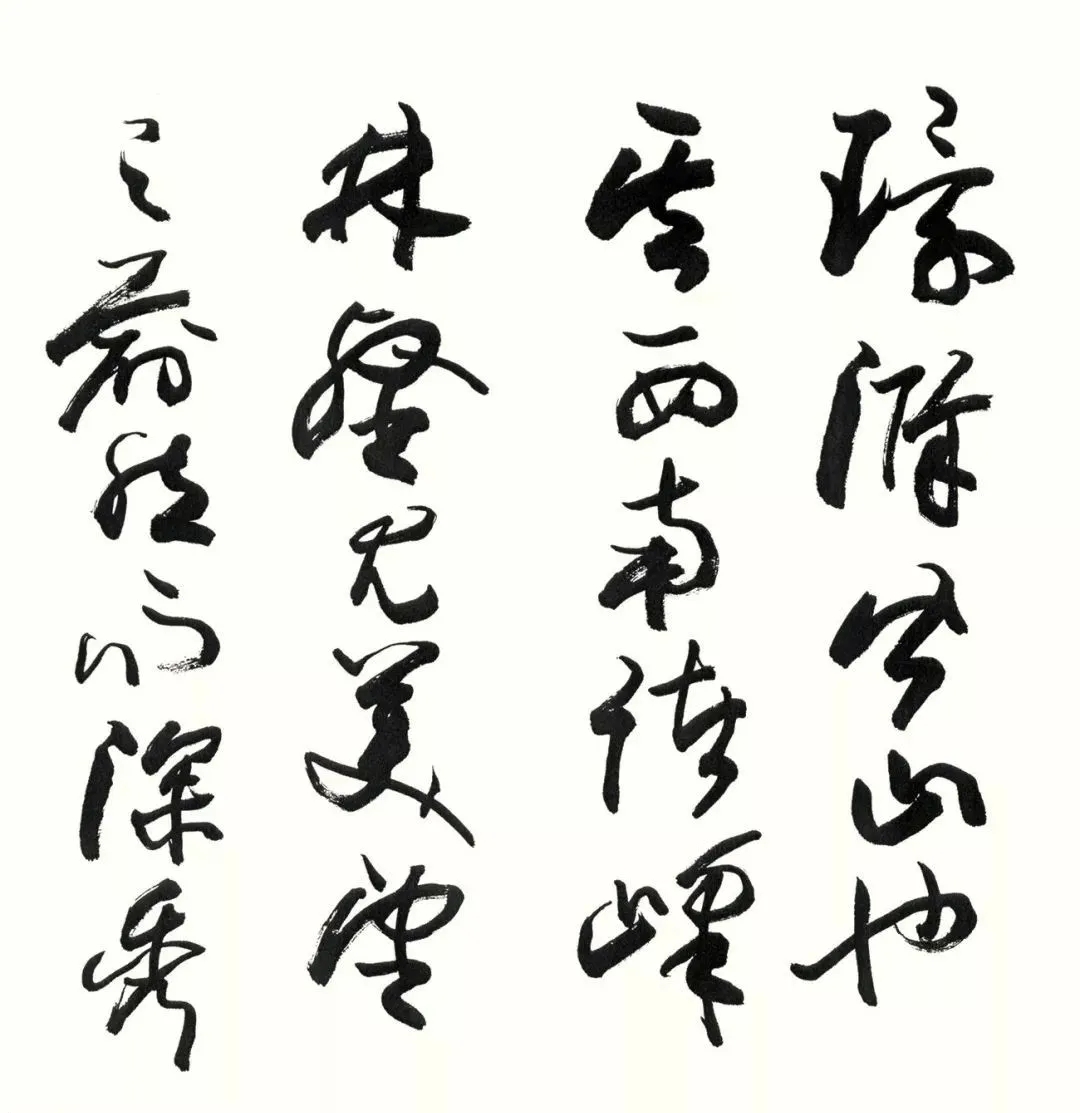 環滁皆山也
其西南諸峰
林壑尤美望
之蔚然而深秀